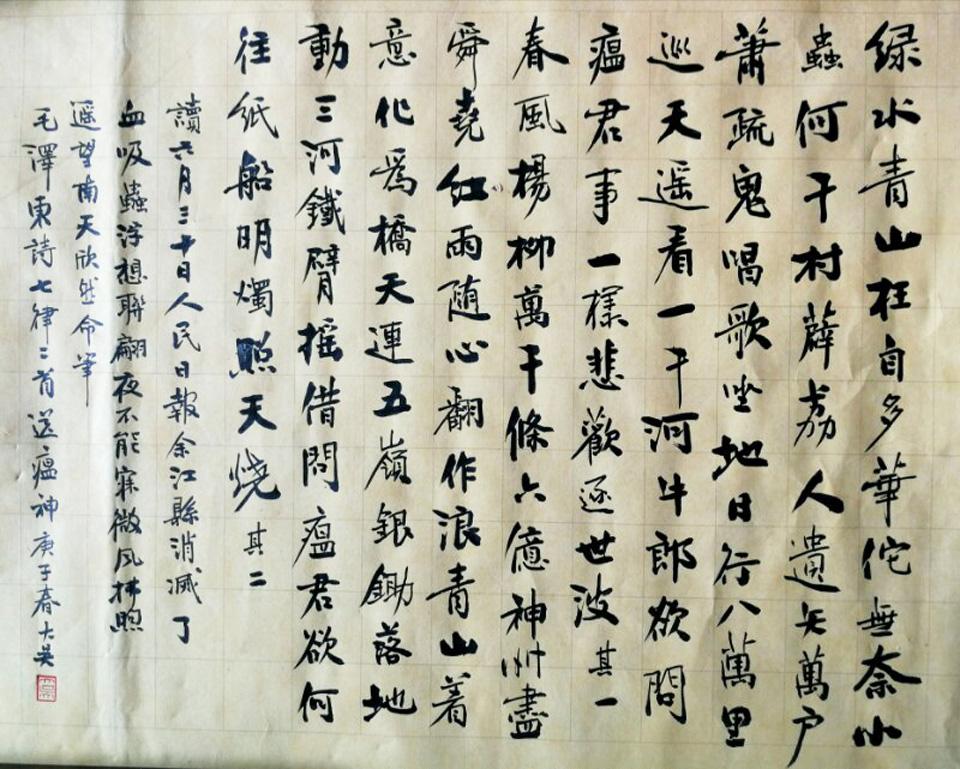 绿水青山枉自多華佗無奈小
蟲何千村薜荔人遺矢萬户
萧疏鬼唱歌坐地日行八萬里
巡天遥看一千河牛郎欲問
瘟君事一樣悲歡逐世波其一
春風楊柳萬千條六億神州盡
舜堯红雨随心翻作浪青山着
意化爲橋天連五嶺銀鋤落地
動三河鐵臂摇借問瘟君欲何
往紙船明燭照天烧其二
讀六月三十日人民日報余江縣消滅了
血吸蟲浮想聯翩夜不能寐微风拂煦
遥望南天欣然命筆
毛澤東詩七律二首送瘟神庚子春大吴